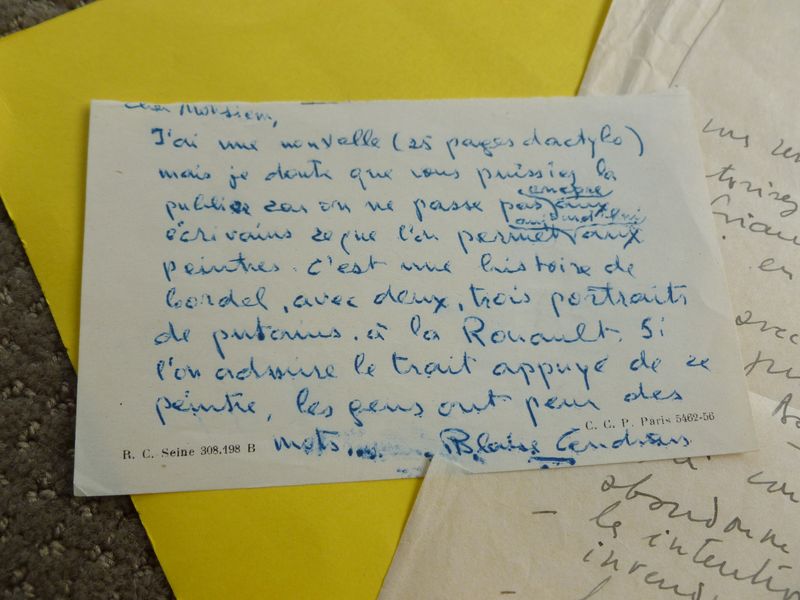 Cher Monsieur,
J'ai une nouvelle (25 pages dactylo)
mais je doute que vous puissiez la
encore
publier car on ne passe pas aux
aujourd'hui
écrivains ce que l'on permet aux
peintres. C'est une histoire de
bordel, avec deux, trois portraits
de putains. à la Rouault. Si
l'on admire le trait appuyé de ce
peintre, les gens ont peur des
C. C. P. Paris 5462-56
mots.... Blaise Cendrars
R. C. Seine 308.198 B
en
avec
abandonne
les intentio